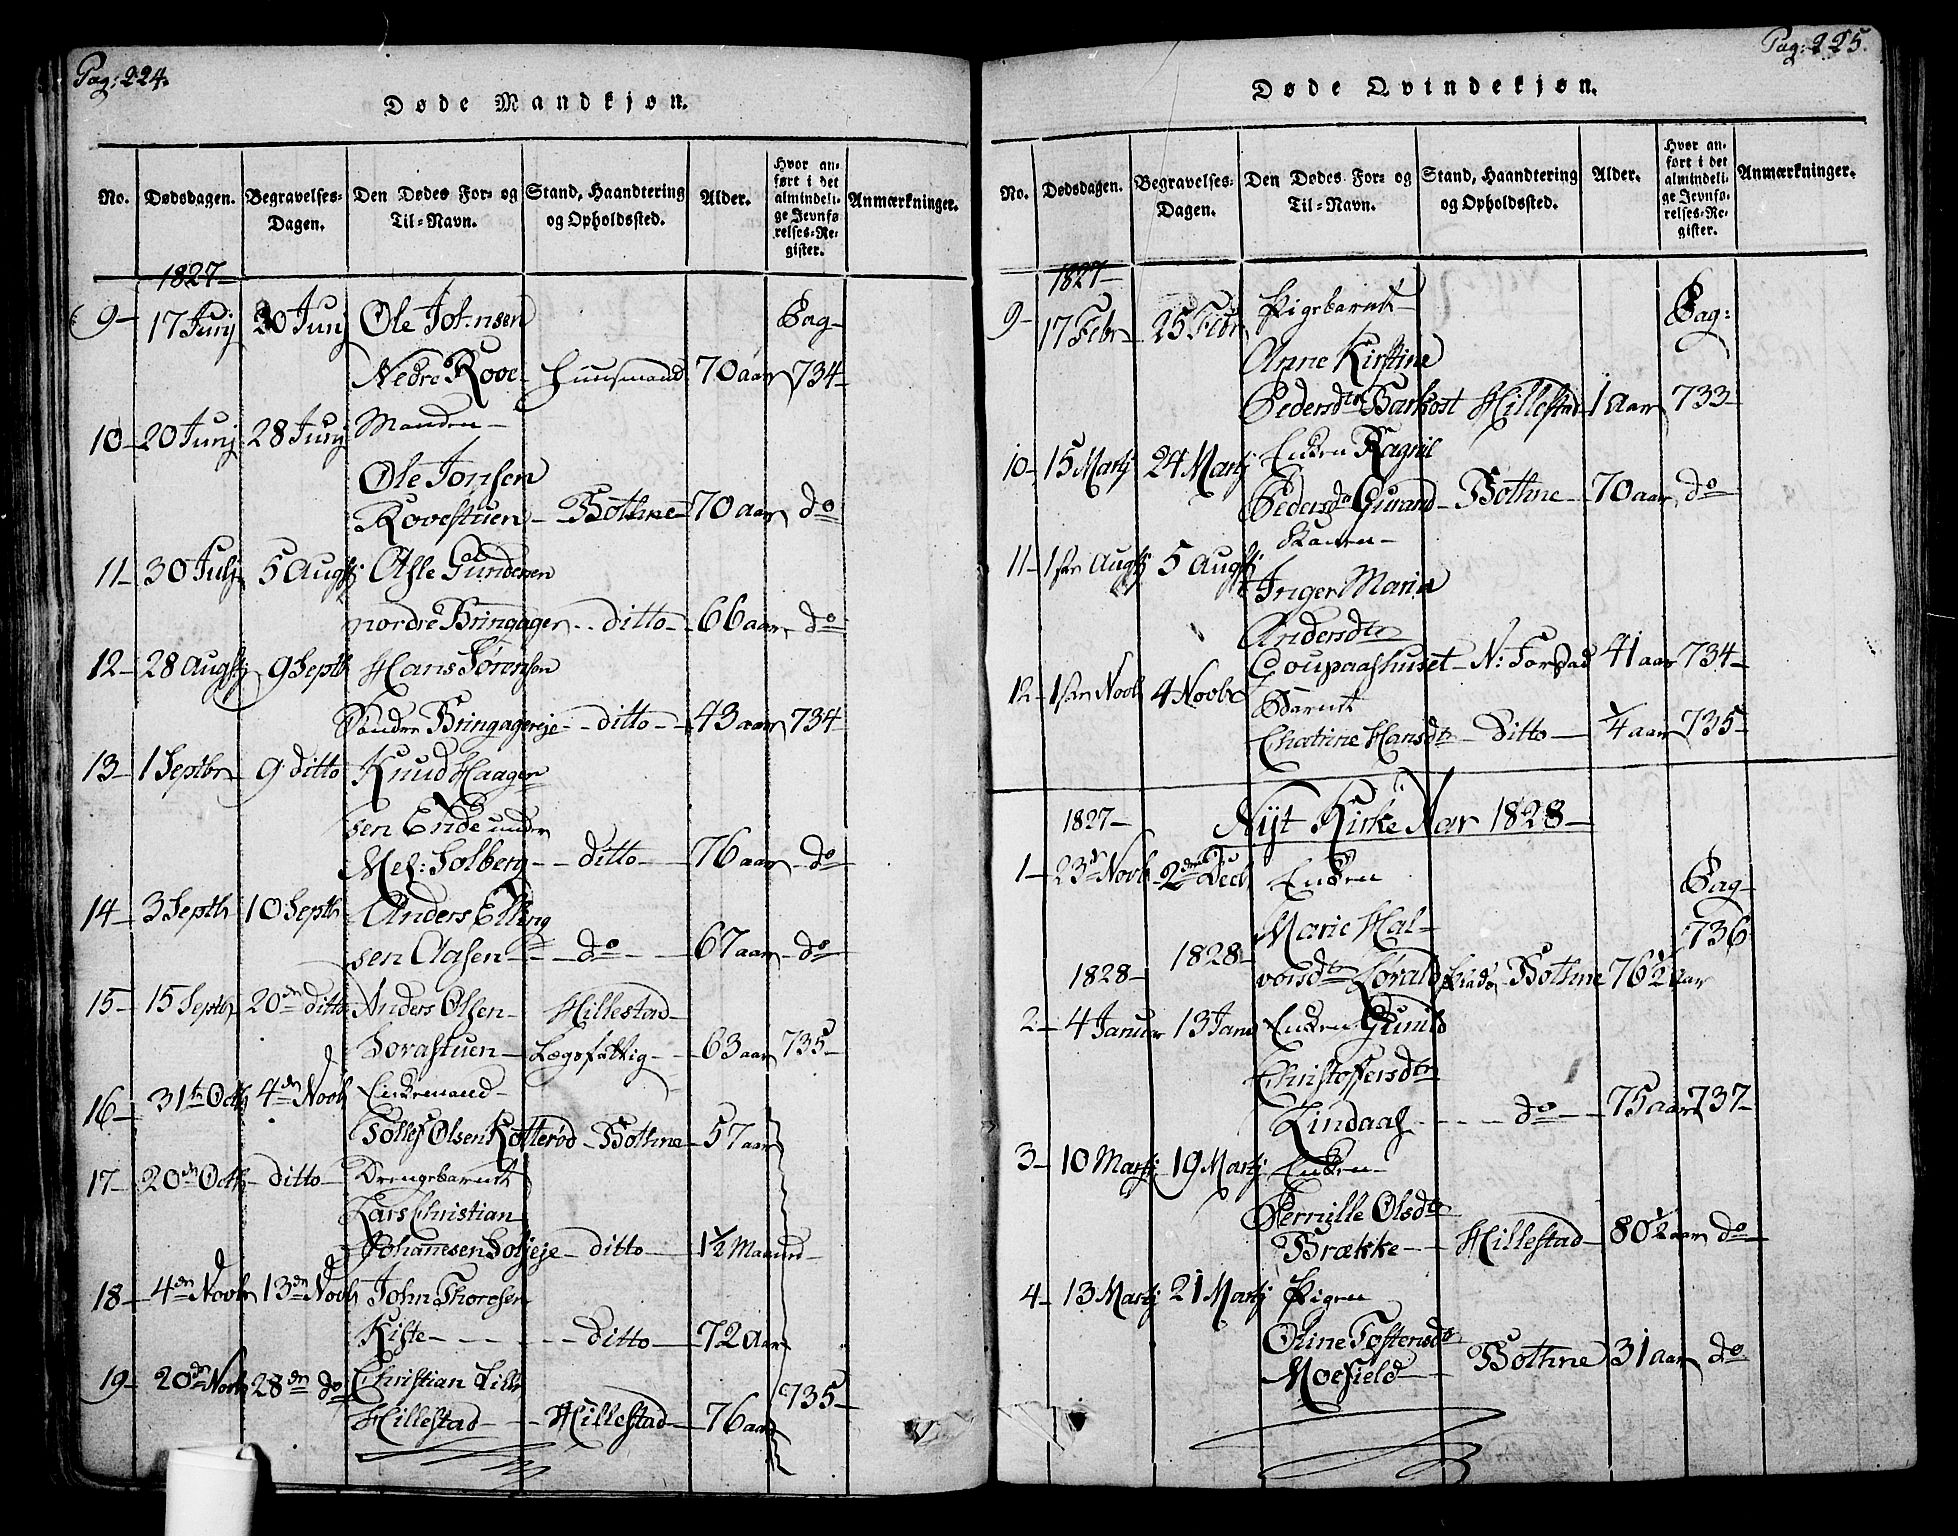 Pag: 224.
Døde Mandkjøn.
No.
Dødsdagen.
Begravelses-
Dagen.
Den Dødes For- og
Til-Navn.
Stand, Haandtering
og Opholdssted.
Alder.
Hvor an-
ført i det
almindeli-
ge Jevnfø
relses-Re-
gister.
Anmærkninger.
1827-
9- 17 Junj 20 Junj Ole Johnsen Pag-
Nedre Rove- Huusmand 70 aar 734-
10- 20 Junj 28 Junj Manden-
Ole Jonsen
Rovestuen- Bothne- 70 aar do
11- 30 Julj 5 Augstj Asle Gundersen
nordre Bringager- ditto- 66 aar do
12- 28 Augstj 9 Septb Hans Sørensen
Søndre Bringagereje- ditto- 43 aar 734
13- 1 Septbr 9 ditto Knud Haager
sen Ende under
Mel: Solberg- ditto- 76 aar do
14- 3 Septb 10 Septb Anders Elling
sen Aasen- do- 67 aar do
15- 15 Septbr 20de ditto Anders Olsen- Hillestad-
Sorastuen- Lægsfattig- 63 aar 735-
16- 31te Octb 4de Novb Enkemand-
Tollef Olsen Kotterød- Bothne- 57 aar
17- 20de Octb- ditto- Drengebarnet
Lars Christian
Johanesen Solieje- ditto- 1 1/2 Maaned-
18- 4de Novbr 13de Novb John Thoresen
Kiste- ditto- 72 Aar
19- 20de Novb 28de do Christian Lille
Hillestad- Hillestad- 76 aar 735-
Pag: 225.
Døde Qvindekjøn.
No.
Dødsdagen.
Begravelses-
Dagen.
Den Dødes For- og
Til-Navn.
Stand, Haandtering
og Opholdssted.
Alder.
Hvor an-
ført i det
almindeli-
ge Jevnfø-
relses-Re-
gister.
Anmærkninger.
1827-
9- 17 Febr 25 Febr Pigebarnet- Pag:
Anne Kirstine
Pedersdtr Barkost Hillestad 1 Aar 733-
10- 15 Martj 24 Martj Enken Ragnil
Pedersdr Gurand- Bothne- 70 aar do
Konen-
11- 1ste Augstj 5 Augstj Inger Maria
Andersdtr
Coupaashuset- N: Forstad 41 aar 734-
12- 1ste Novb 4 Novbr Barnet
Chatrine Hansdtr- Ditto- 1/4 aar 735-
1827- Nÿt Kirke Aar 1828-
1- 23de Novb- 2den Decb Enken Pag-
Marie Hal- 736
1828- 1828- vorsdtr Bothne 76 1/2 aar
2- 4 Januar 13 Jan Enken Gunild
Christofersdtr
Lindaas- do- 75 aar 737-
3- 10 Martj 19 Martj Enken-
Pernille Olsdtr
Brække- Hillestad- 80 1/2 aar do
4- 13 Martj 21 Martj Pigen
Oline Tostensdtr
Moefield- Bothne 31 aar do